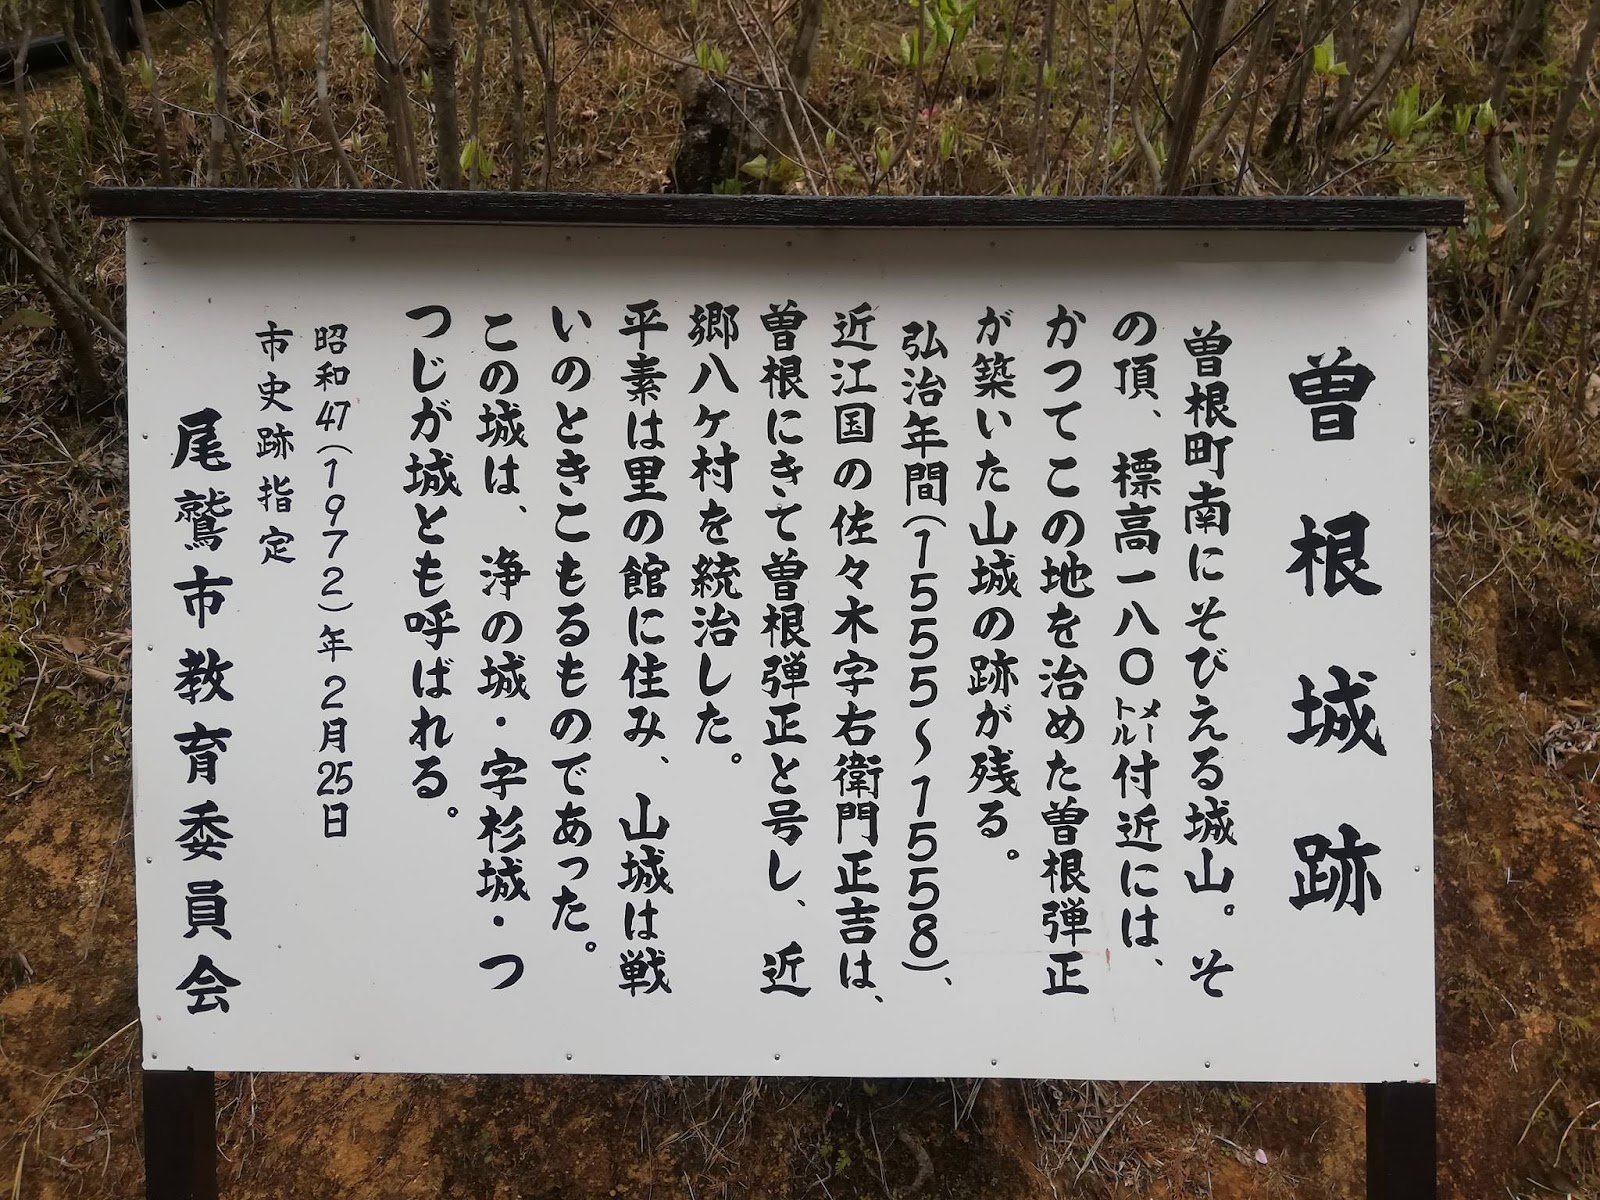 曽根城跡
曽根町南にそびえる城山。そ
の頂、標高一八〇メートル付近には、
かつてこの地を治めた曽根弾正
が築いた山城の跡が残る。
弘治年間(1555〜1558)、
近江国の佐々木宇右衛門正吉は、
曽根にきて曽根弾正と号し、近
郷八ケ村を統治した。
平素は里の館に住み、山城は戦
いのときこもるものであった。
この城は、浄の城・字杉城・つ
つじが城とも呼ばれる。
昭和47(1972)年2月25日
市史跡指定
尾鷲市教育委員会